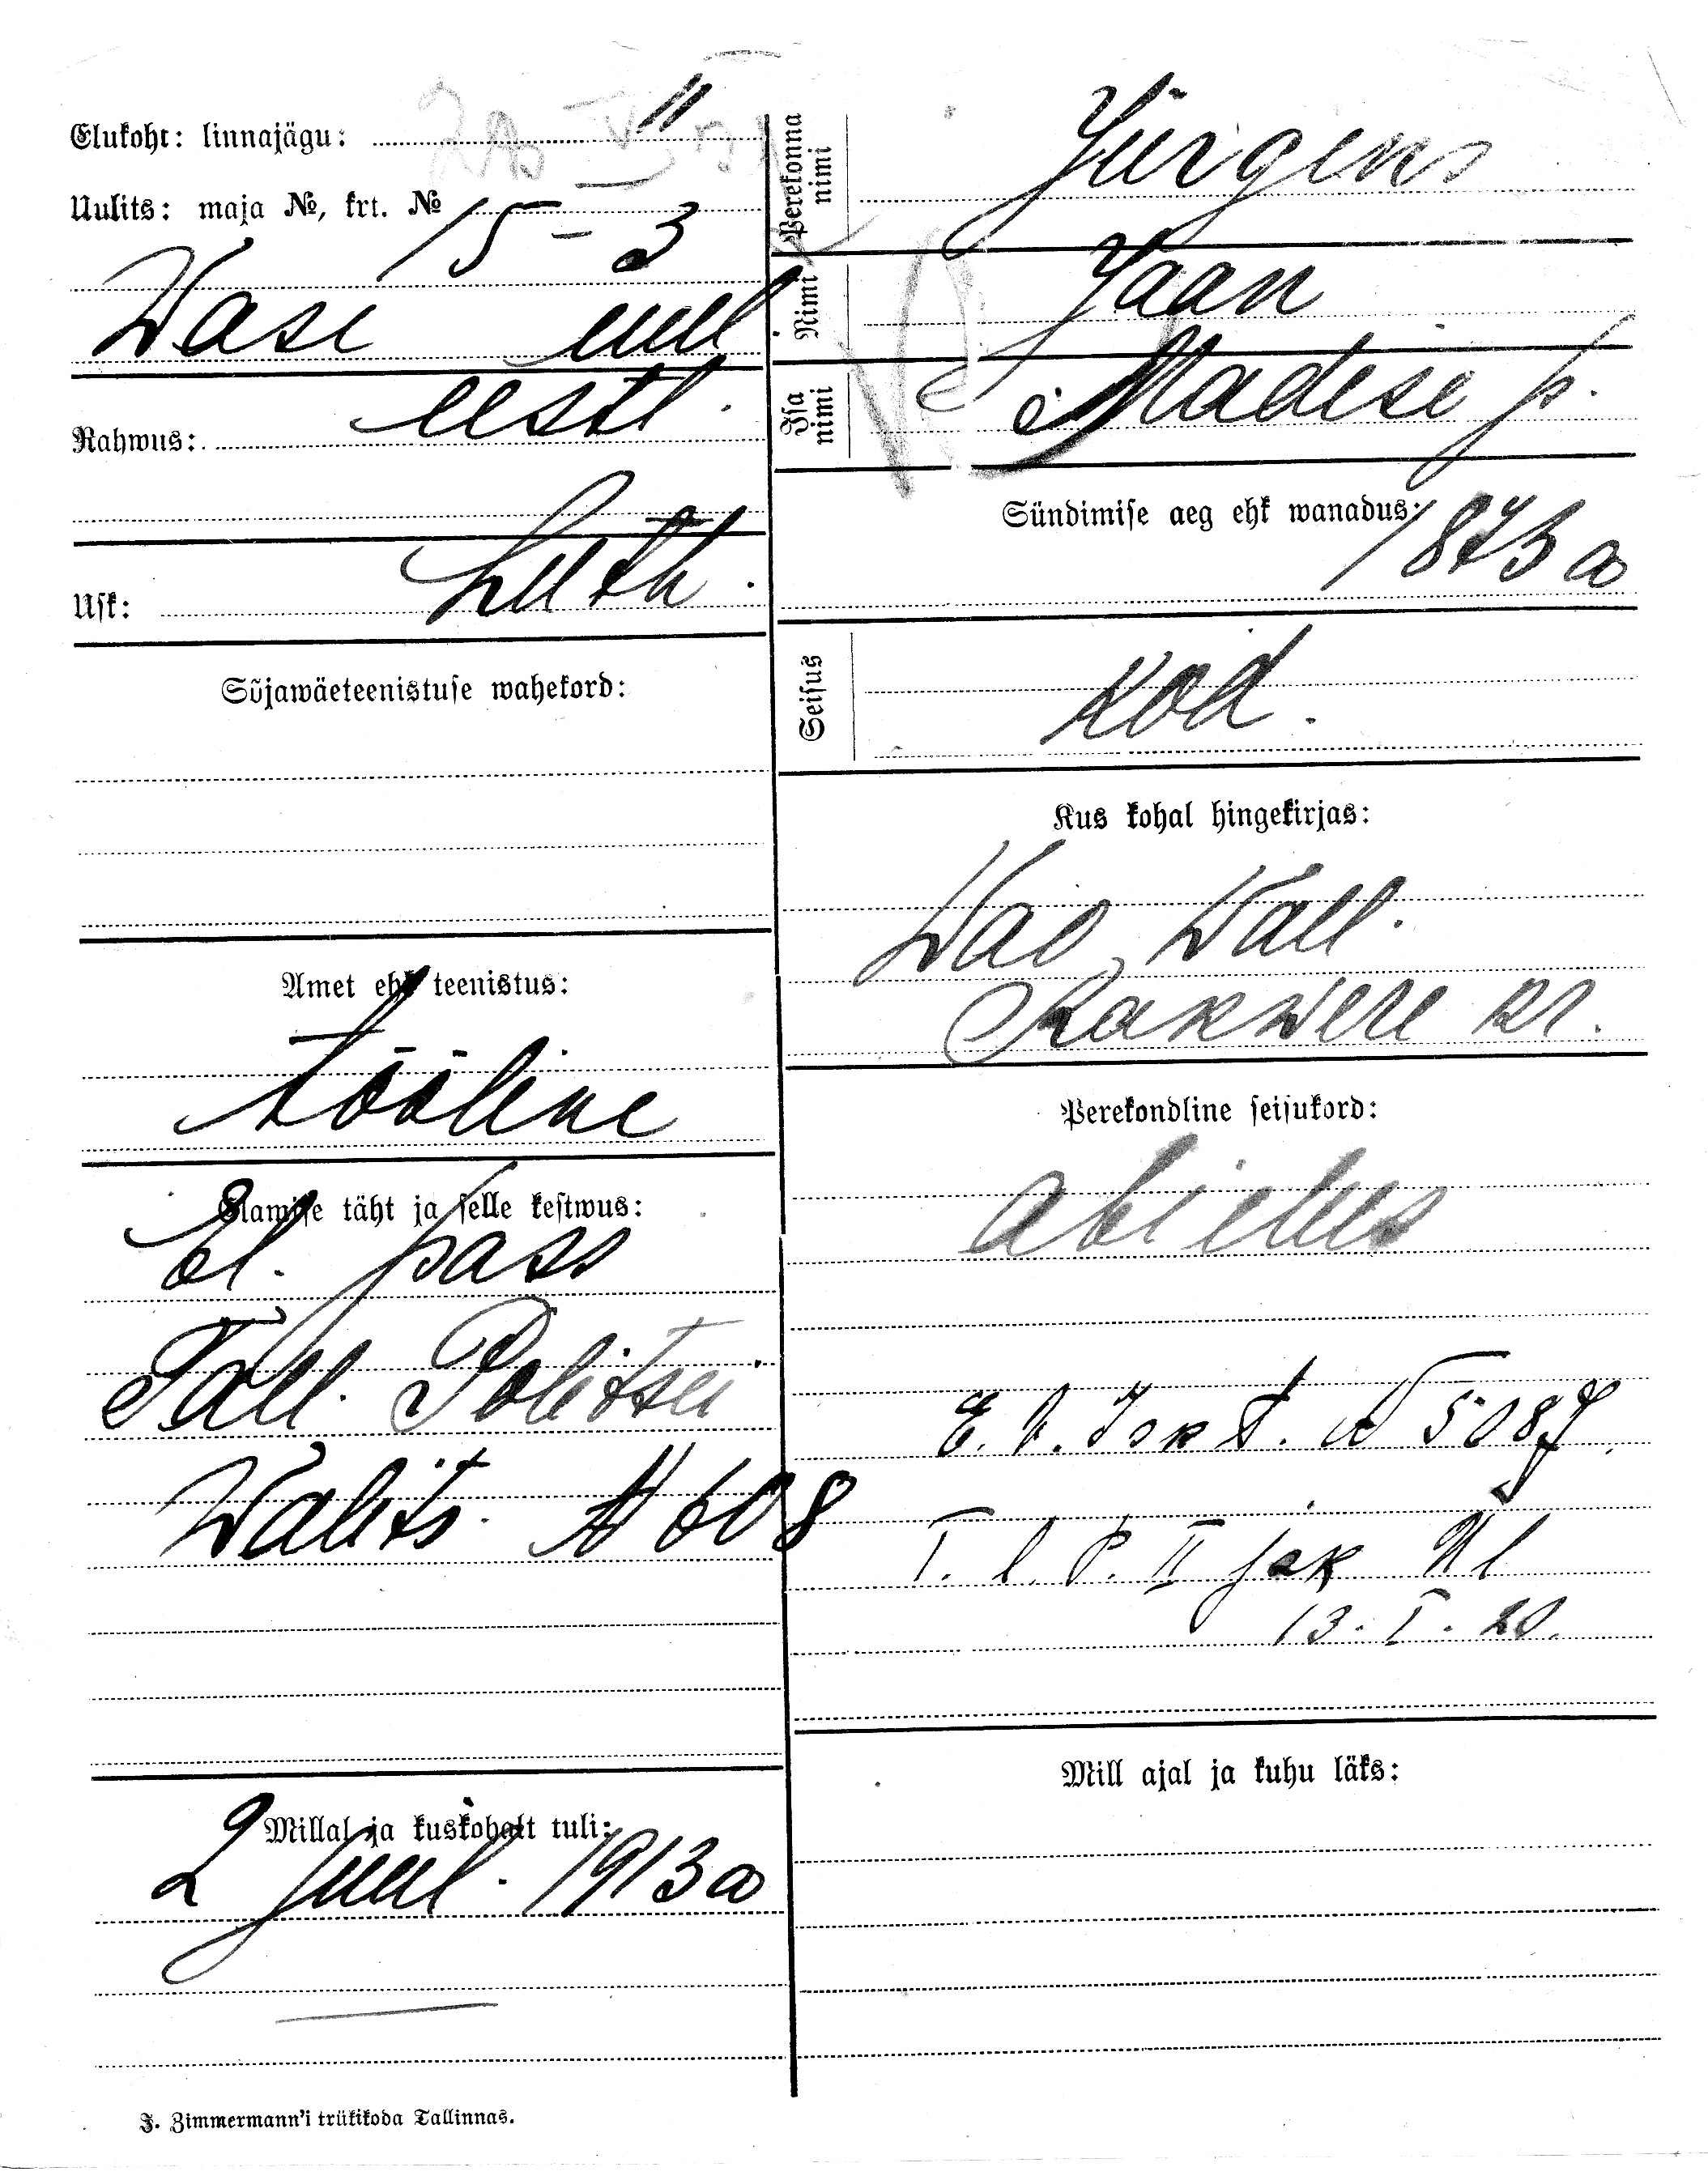 Elukoht: linnajägu: II
Uulits: maja №, krt. № 15-3
Wase uul
Rahwus: eestl.
Usk: Luth.
Sõjawäeteenistuse wahekord:
Amet ehk teenistus:
tööline
Elamise täht ja selle kestwus:
El. pass
Tall. Politsei
Walits. N 608
Millal ja kuskohalt tuli:
2 Juul. 1913 a
J. Zimmermann'i trükikoda Tallinnas.
Perekonna nimi Jürgens
Nimi Jaan
Isa nimi Madise p.
Sündimise aeg ehk wanadus: 1873 a
Seisus kod.
Kus kohal hingekirjas:
Wao Wall.
Rakwere kr.
Perekondline seisukord:
abielus
E. V. Isk t. N 5087.
T. l. P. II jsk Ül
13. I. 20.
Mill ajal ja kuhu läks: